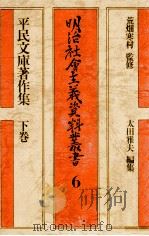 荒畑寒村 監修
太田雅夫 編集
明治社會主義資料叢書
6
平民文庫著作集 下巻